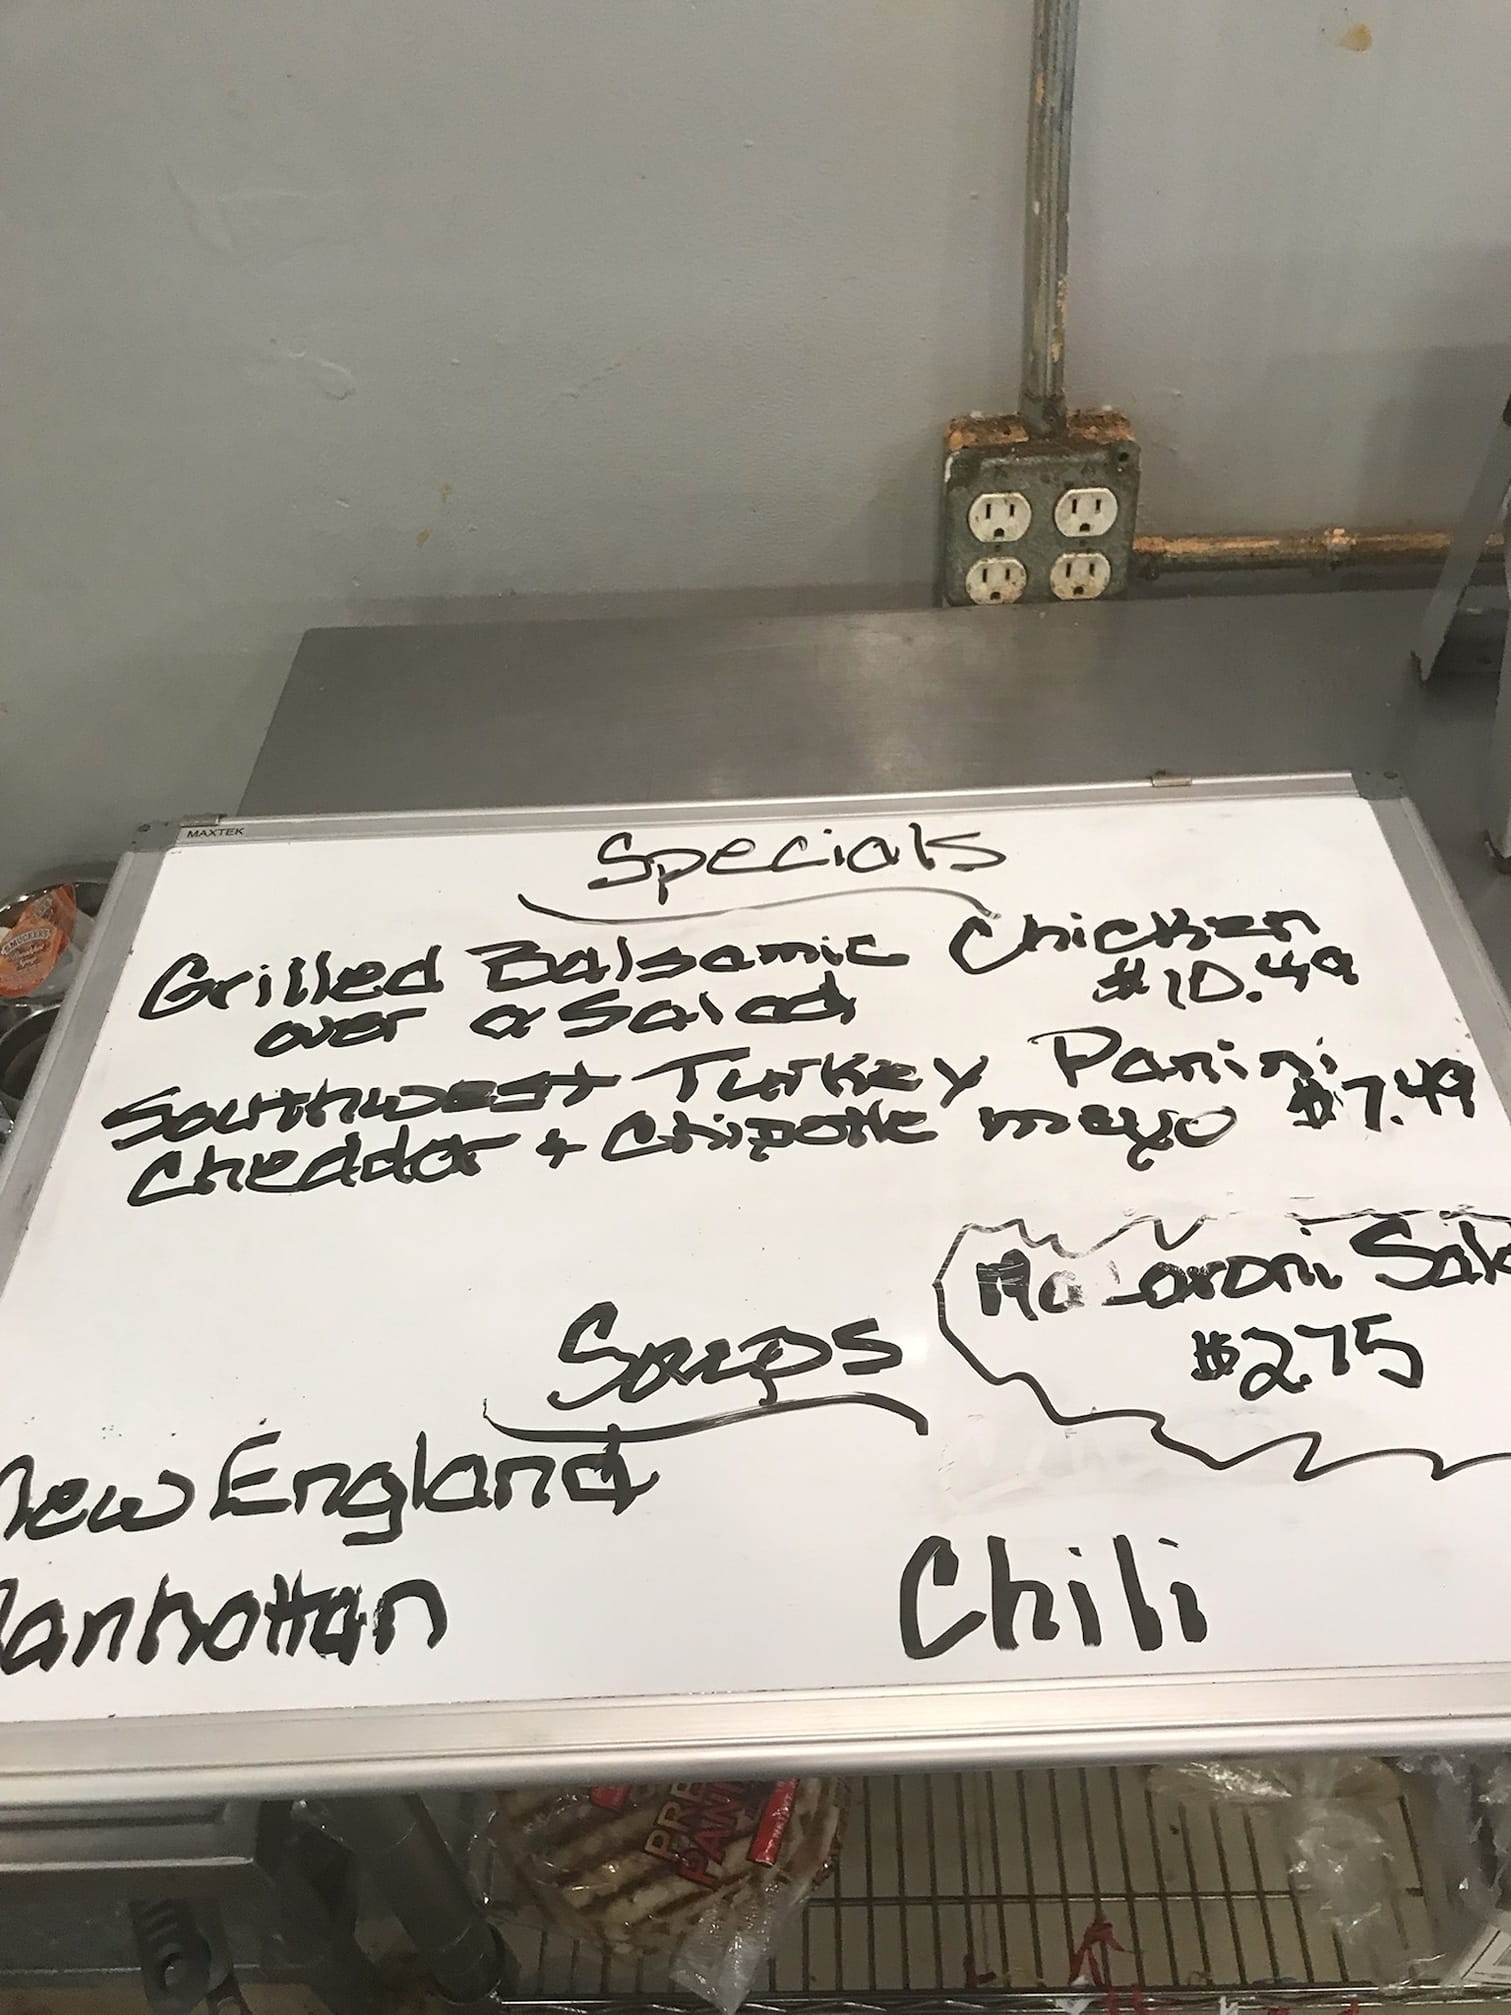 MAXTEK
Specials
Grilled Balsamic Chicken
over a Salad $10.49
Southwest Turkey Panini
Cheddar + Chipotle mayo $7.49
Macaroni Sala
$2.75
Soups
New England
Manhattan
Chili
SMUCKER'S
PRE
PANI